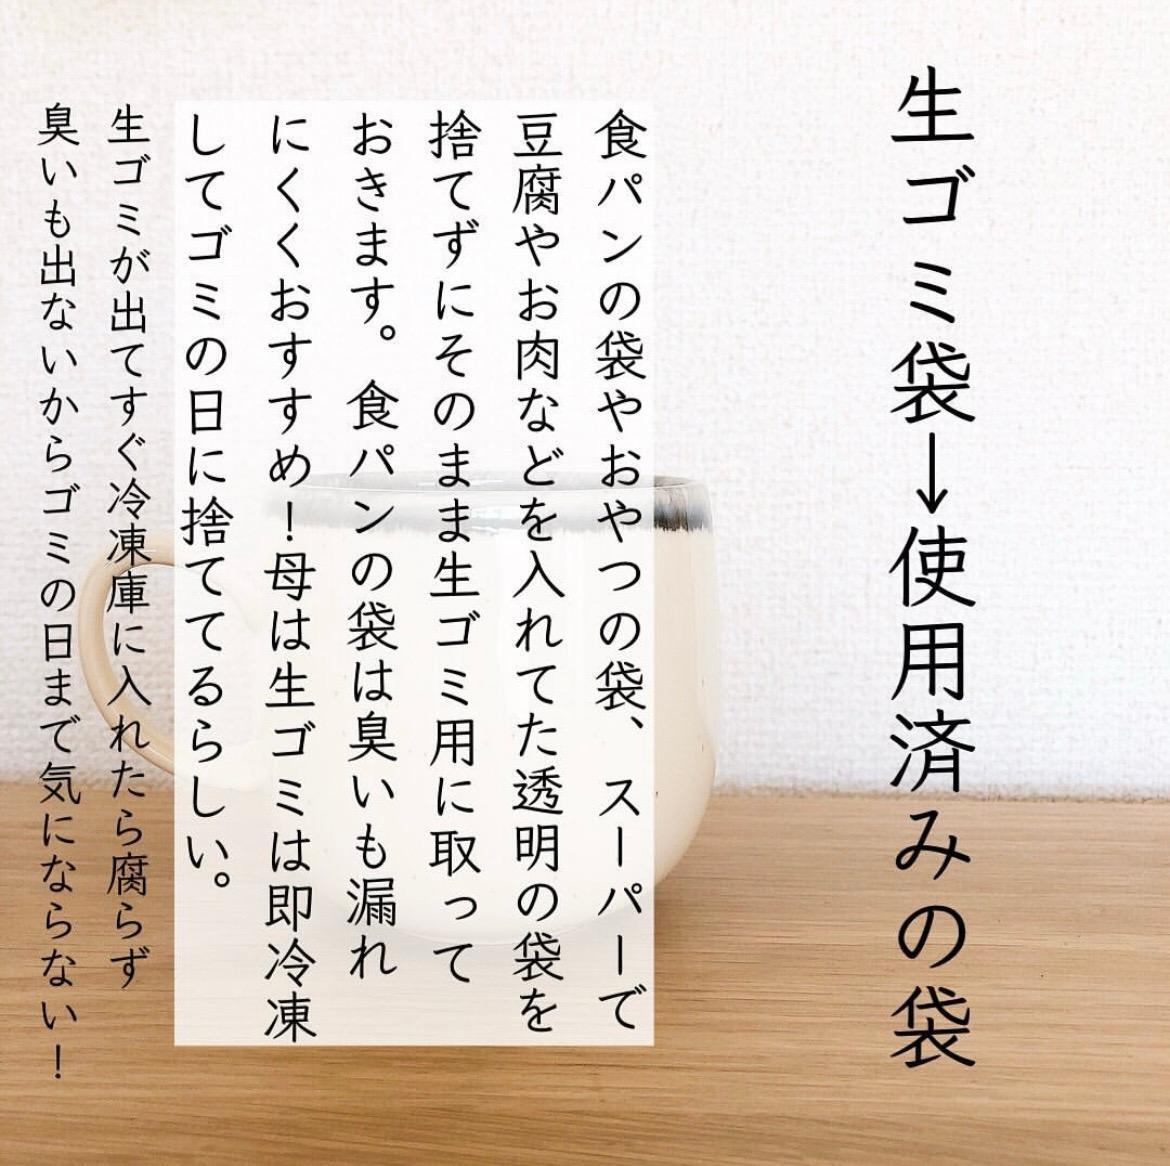 生ゴミ袋→使用済みの袋
食パンの袋やおやつの袋、スーパーで
豆腐やお肉などを入れてた透明の袋を
捨てずにそのまま生ゴミ用に取って
おきます。食パンの袋は臭いも漏れ
にくくおすすめ！母は生ゴミは即冷凍
してゴミの日に捨ててるらしい。
生ゴミが出てすぐ冷凍庫に入れたら腐らず
臭いも出ないからゴミの日まで気にならない！